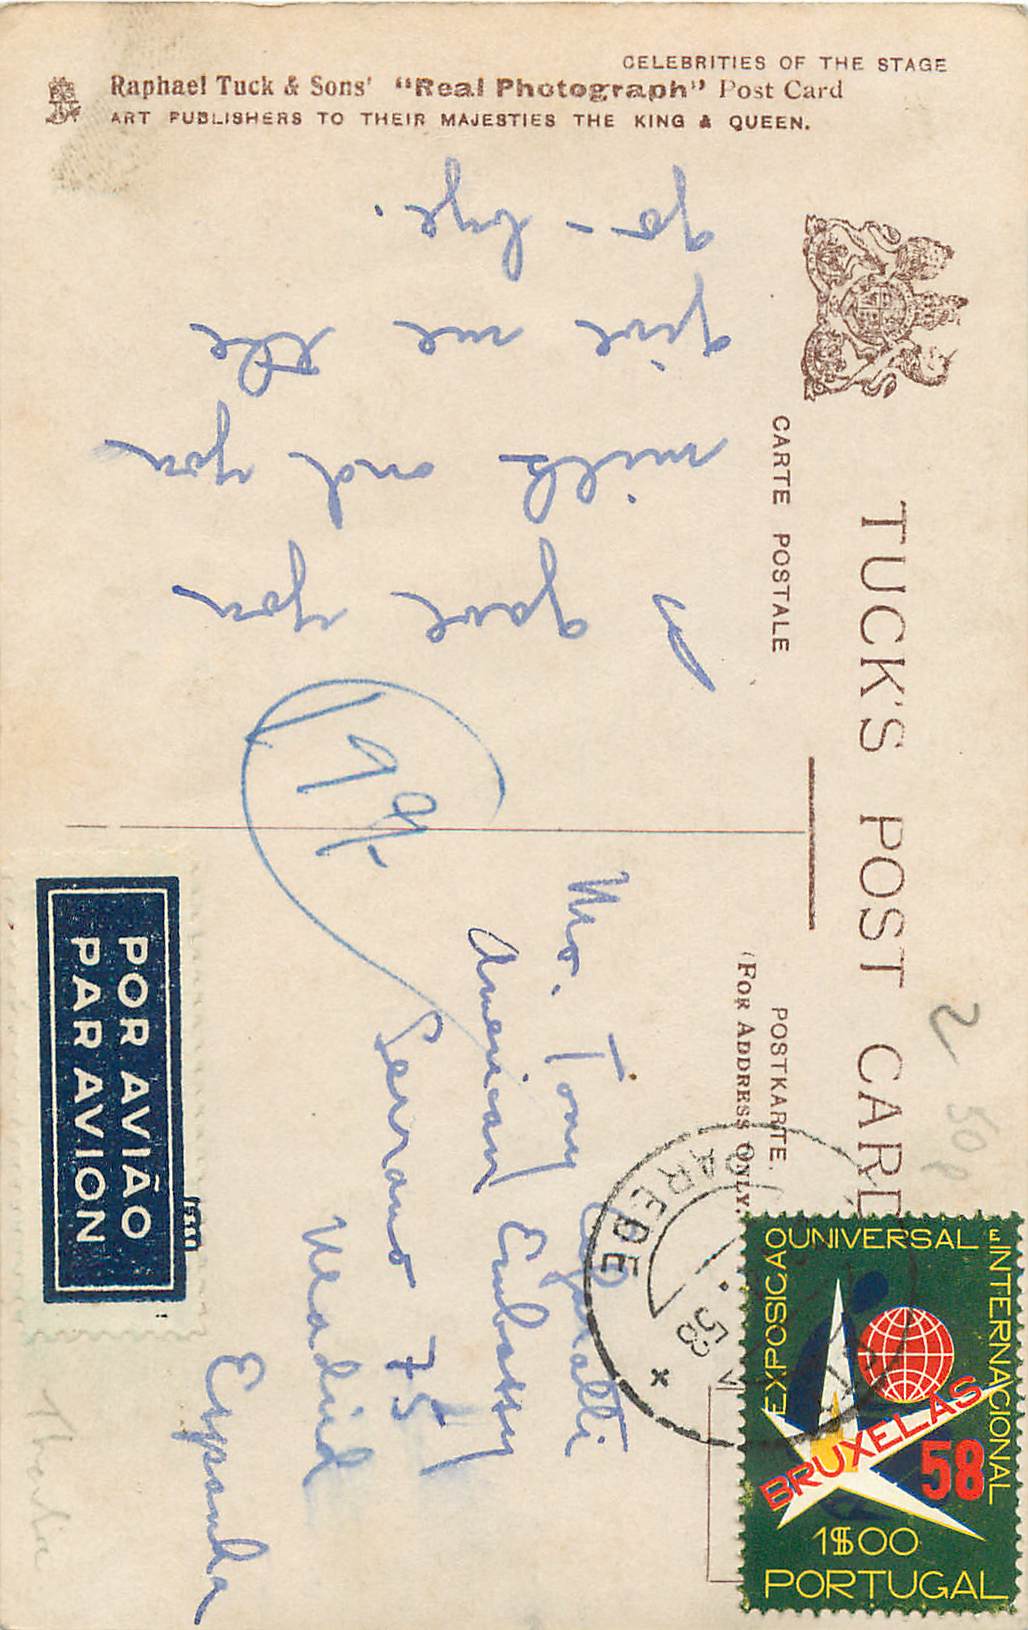 CELEBRITIES OF THE STAGE
Raphael Tuck & Sons' "Real Photograph" Post Card
ART PUBLISHERS TO THEIR MAJESTIES THE KING & QUEEN.
TUCK'S POST CARD
CARTE POSTALE
POSTKARTE.
(FOR ADDRESS ONLY.)
I gave you
milk and you
give me the
go-bye.
199.
Mr. Tony
American Embassy
Serrano 75
Madrid
Espanha
POR AVIÃO
PAR AVION
2
50p
PAREDE
PAREDE
58
EXPOSIÇÃO UNIVERSAL E INTERNACIONAL
BRUXELAS
58
1$00
PORTUGAL